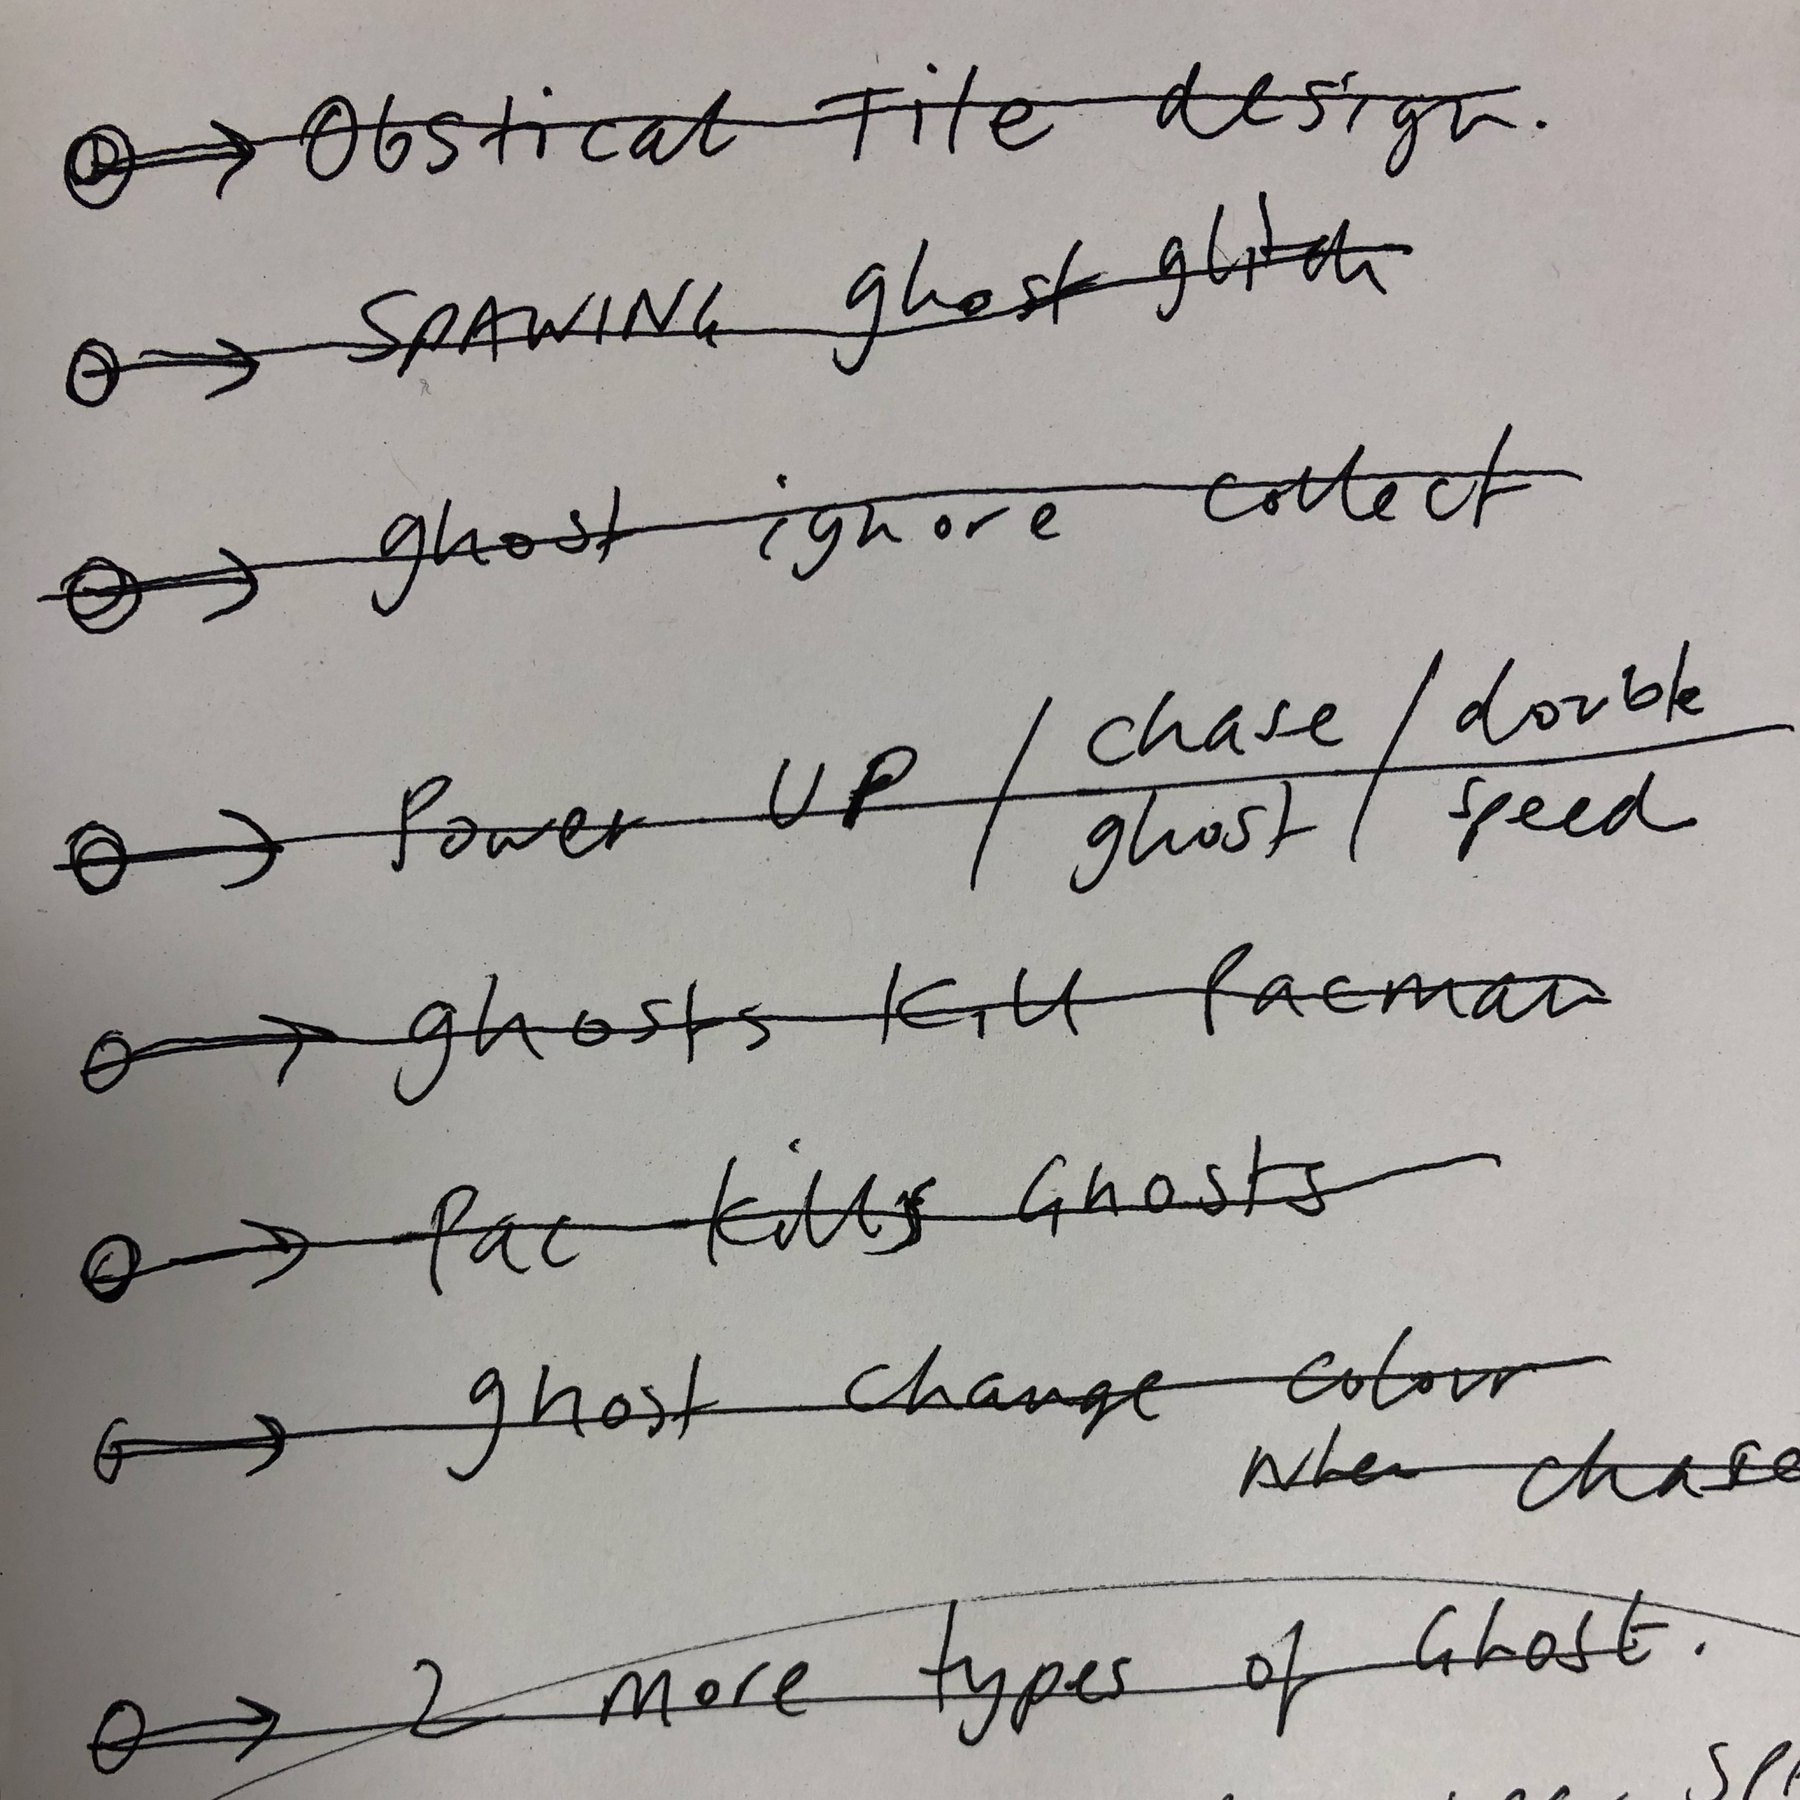 Obstical Tile design.
SPAWING ghost glitch
ghost ignore collect
Power UP / chase ghost / double speed
ghosts Kill Pacman
Pac kills Ghosts
ghost change colour
when chase
2 more types of Ghost.